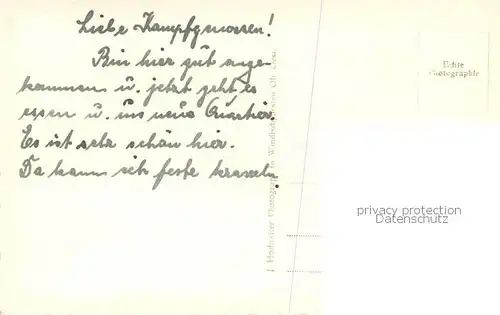 Liebe Kampfgenossen!
Bin hier gut ange-
kommen u. jetzt geht es
essen u. ins neue Quartier.
Es ist sehr schön hier.
Da kann ich feste kraxeln.
Echte
Photographie
privacy protection
Datenschutz